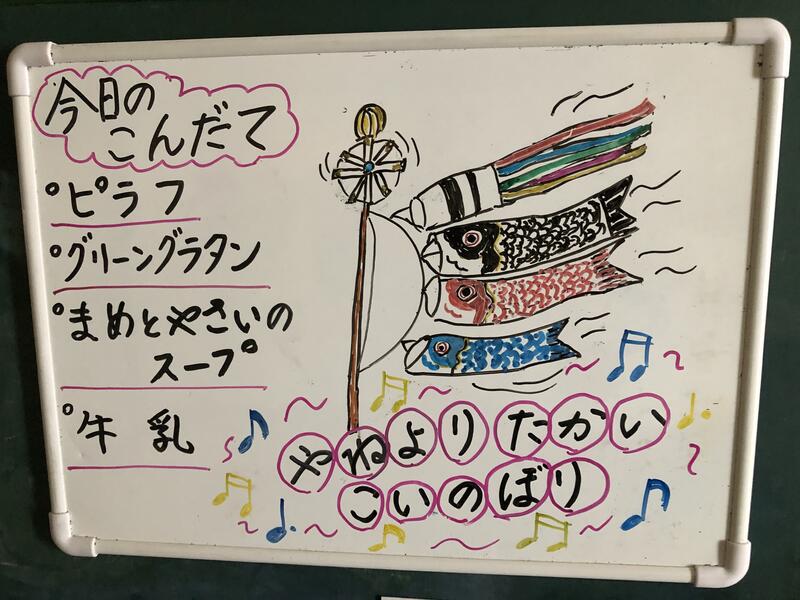 今日の
こんだて
°ピラフ
°グリーングラタン
°まめとやさいの
スープ
°牛乳
やねよりたかい
こいのぼり